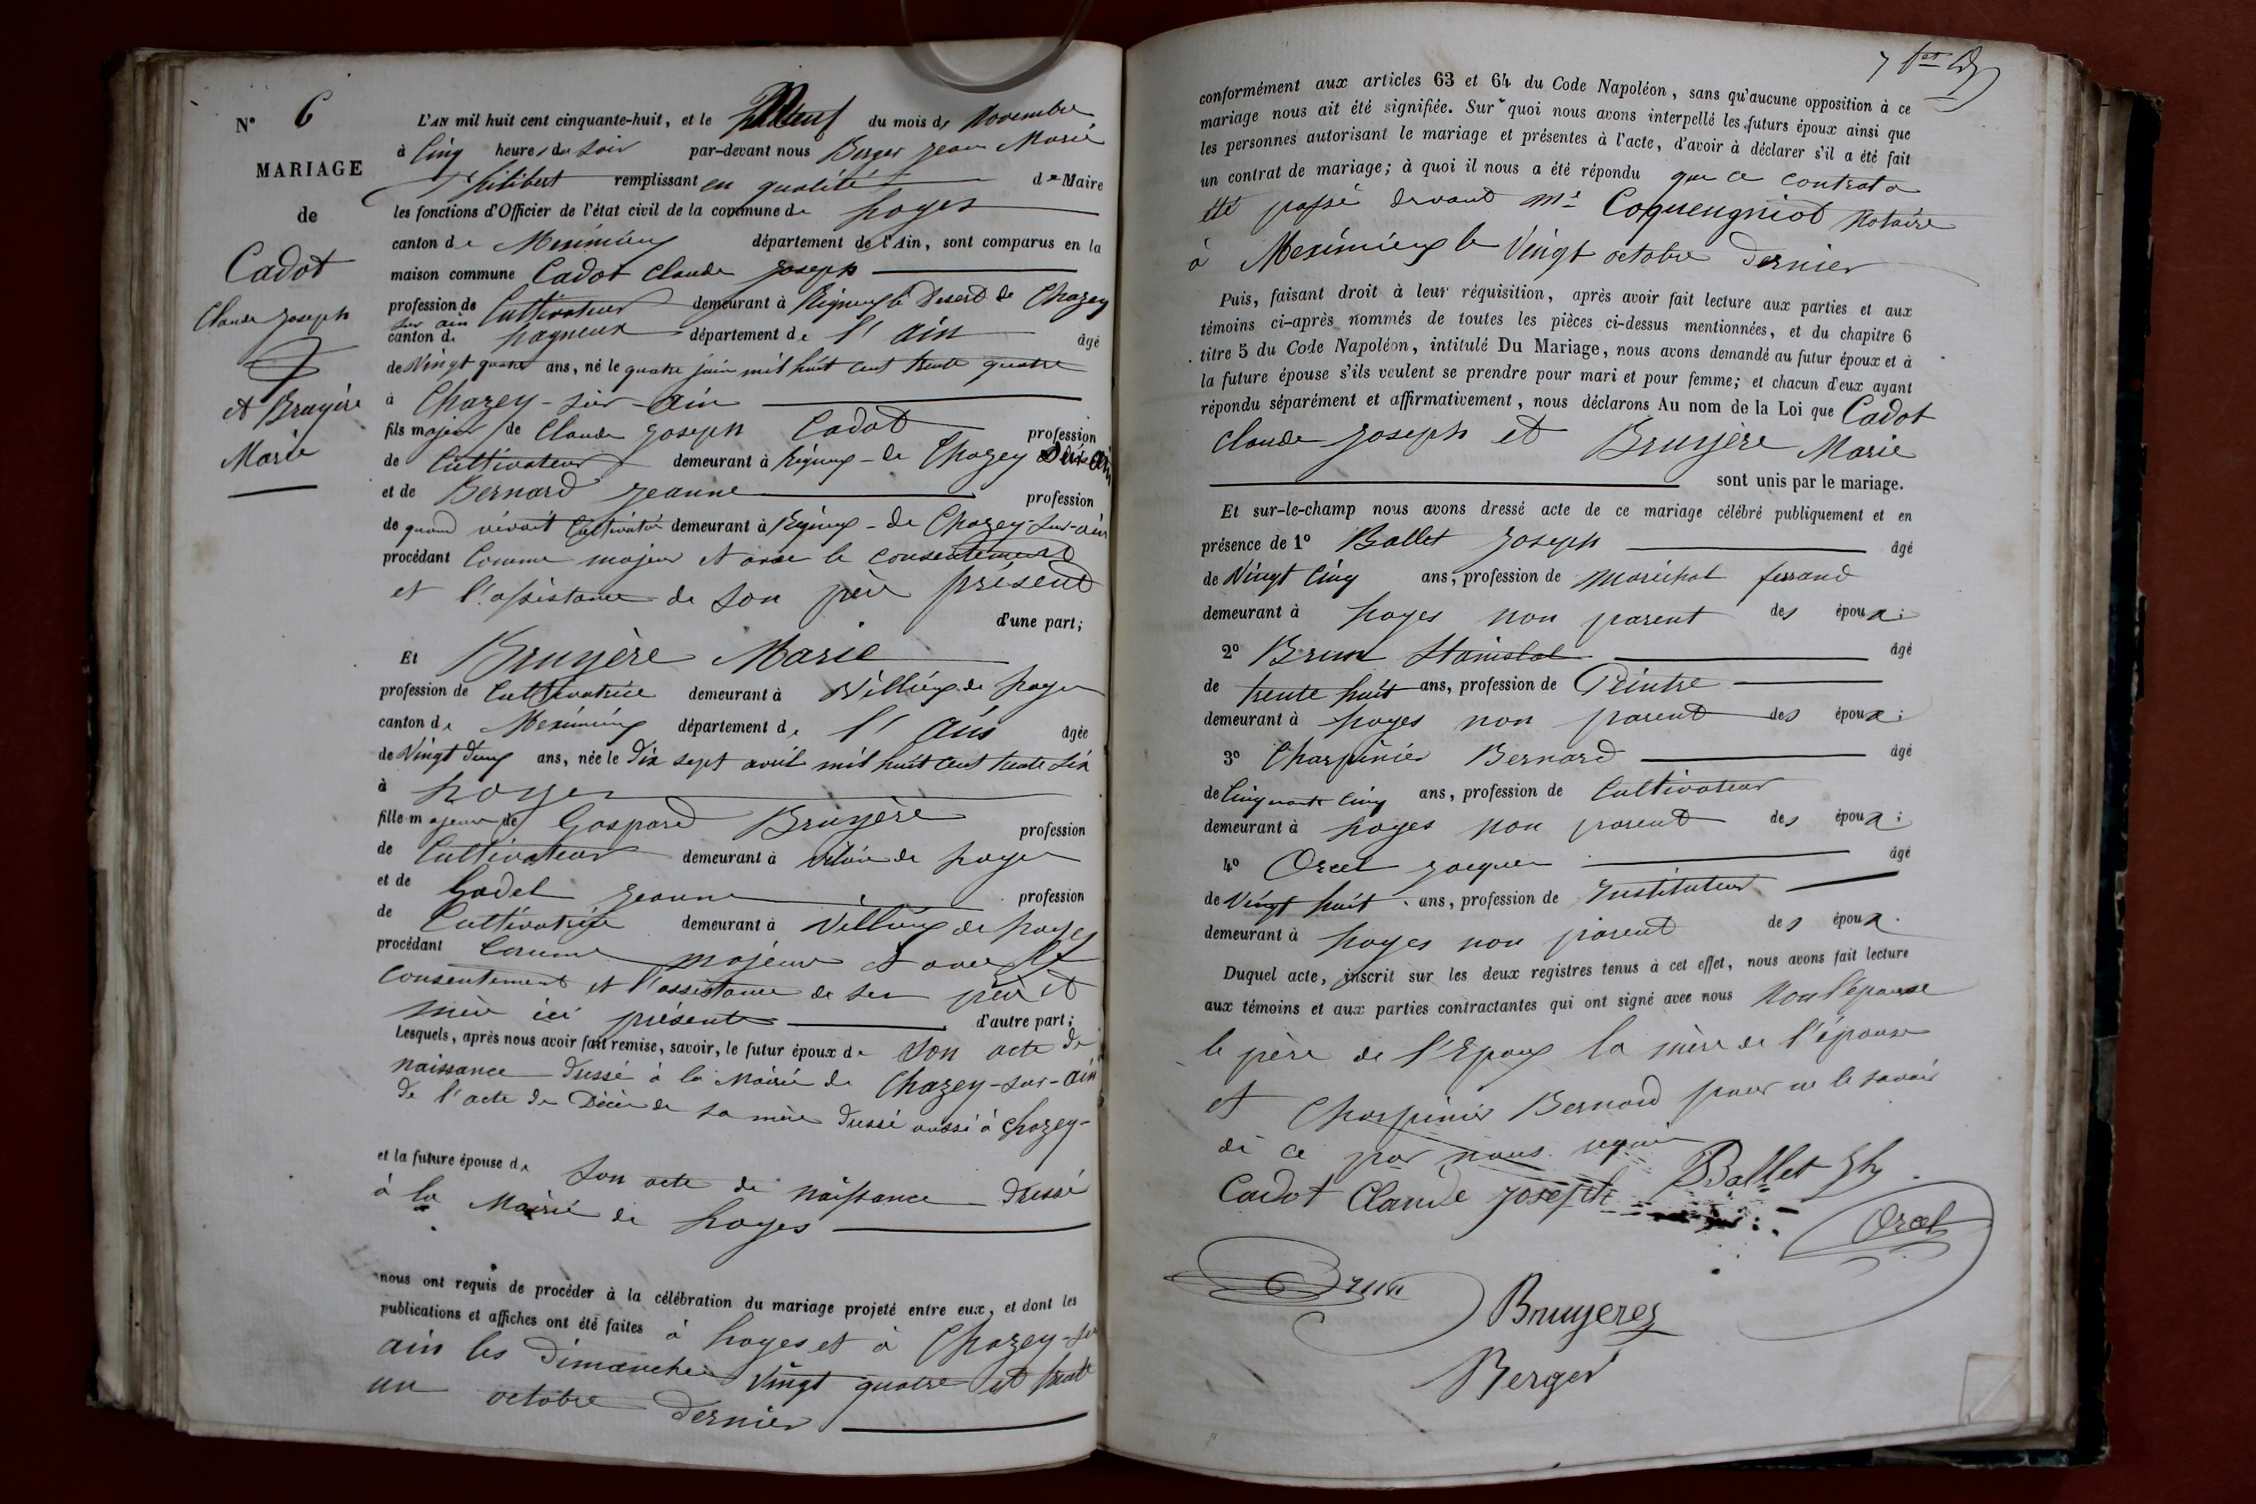 N° 6
MARIAGE
de
Cadot
Claude Joseph
et Bruyère
Marie
L'AN mil huit cent cinquante-huit, et le neuf du mois de Novembre
à Cinq heures du soir par-devant nous Berger Jean Marie
Philibert remplissant en qualité de Maire
les fonctions d'Officier de l'état civil de la commune de Loyes
canton de Meximieux département de l'Ain, sont comparus en la
maison commune Cadot Claude Joseph
profession de Cultivateur demeurant à Rigneux le Désert de Chazey
sur ain
canton de Lagneux département de l'ain âgé
de Vingt quatre ans, né le quatre juin mil huit cent trente quatre
à Chazey-sur-ain
fils majeur de Claude Joseph Cadot profession
de Cultivateur demeurant à Rigneux-de Chazey sur ain
et de Bernard Jeanne profession
de quand vivait Cultivatrice demeurant à Rigneux-de Chazey-sur-ain
procédant Comme majeur et avec le consentement
et l'assistance de son père présent
d'une part;
Et Bruyère Marie
profession de Cultivatrice demeurant à Villieux de Loyes
canton de Meximieux département de l'ain âgée
de Vingt deux ans, née le dix sept avril mil huit cent trente six
à Loyes
fille majeure de Gaspard Bruyère profession
de Cultivateur demeurant à Villieux de Loyes
et de Godet Jeanne profession
de Cultivatrice demeurant à Villieux de Loyes
procédant Comme majeure et avec le
consentement et l'assistance de ses père et
mère ici présents d'autre part;
Lesquels, après nous avoir fait remise, savoir, le futur époux de Son acte de
naissance dressé à la Mairie de Chazey-sur-ain
de l'acte de Décès de sa mère dressé aussi à Chazey-
et la future épouse de Son acte de naissance dressé
à la Mairie de Loyes
nous ont requis de procéder à la célébration du mariage projeté entre eux, et dont les
publications et affiches ont été faites à Loyes et à Chazey-sur
ain les dimanches Vingt quatre et trente
un octobre dernier
conformément aux articles 63 et 64 du Code Napoléon, sans qu'aucune opposition à ce
mariage nous ait été signifiée. Sur quoi nous avons interpellé les futurs époux ainsi que
les personnes autorisant le mariage et présentes à l'acte, d'avoir à déclarer s'il a été fait
un contrat de mariage; à quoi il nous a été répondu que ce contrat a
été passé devant Me Coquengniot Notaire
à Meximieux le Vingt octobre dernier
Puis, faisant droit à leur réquisition, après avoir fait lecture aux parties et aux
témoins ci-après nommés de toutes les pièces ci-dessus mentionnées, et du chapitre 6
titre 5 du Code Napoléon, intitulé Du Mariage, nous avons demandé au futur époux et à
la future épouse s'ils veulent se prendre pour mari et pour femme; et chacun d'eux ayant
répondu séparément et affirmativement, nous déclarons Au nom de la Loi que Cadot
Claude Joseph et Bruyère Marie
sont unis par le mariage.
Et sur-le-champ nous avons dressé acte de ce mariage célébré publiquement et en
présence de 1° Ballet Joseph âgé
de Vingt Cinq ans, profession de Maréchal ferrand
demeurant à Loyes non parent des époux;
2° Brun Stanislas âgé
de trente huit ans, profession de Peintre
demeurant à Loyes non parent des époux;
3° Charpinier Bernard âgé
de Cinquante Cinq ans, profession de Cultivateur
demeurant à Loyes non parent des époux;
4° Orcel Jacques âgé
de Vingt huit ans, profession de Instituteur
demeurant à Loyes non parent des époux.
Duquel acte, inscrit sur les deux registres tenus à cet effet, nous avons fait lecture
aux témoins et aux parties contractantes qui ont signé avec nous Non l'épouse
le père de l'Epoux la mère de l'épouse
et Charpinier Bernard pour ne le savoir
de ce par nous requis
Cadot Claude Joseph Ballet Jh
Orcel
Brun
Bruyere
Berger